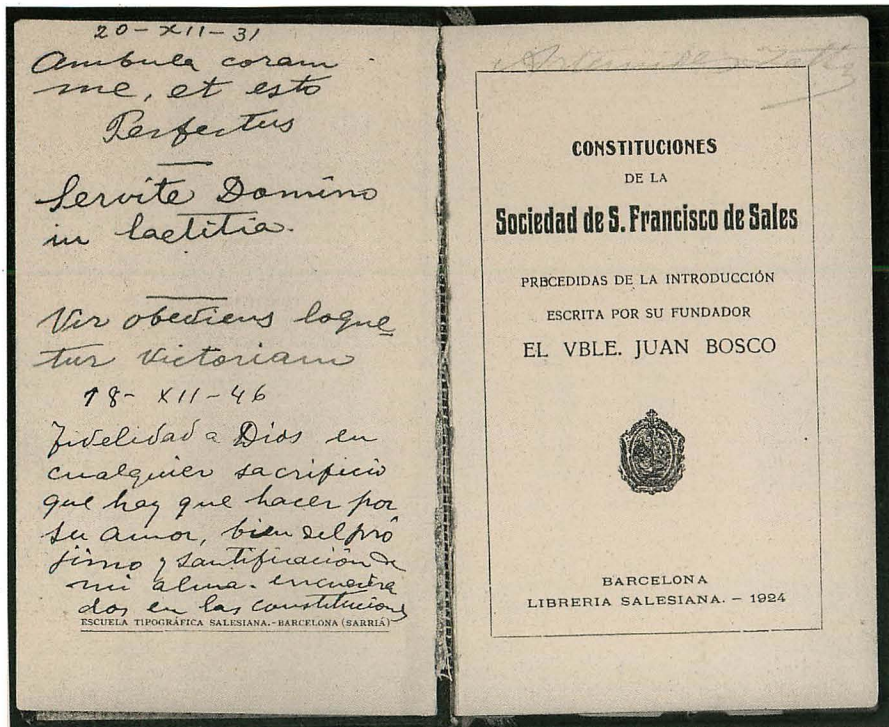 20-XII-31
Ambula coram
me, et esto
Perfectus
Servite Domino
in laetitia.
Vir obediens loque
tur victoriam
18- XII-46
Fidelidad a Dios en
cualquier sacrificio
que hay que hacer por
su amor, bien del pró
jimo y santificación de
mi alma. encuadra
dos en las constituciones
ESCUELA TIPOGRÁFICA SALESIANA.-BARCELONA (SARRIÁ)
CONSTITUCIONES
DE LA
Sociedad de S. Francisco de Sales
PRECEDIDAS DE LA INTRODUCCIÓN
ESCRITA POR SU FUNDADOR
EL VBLE. JUAN BOSCO
BARCELONA
LIBRERIA SALESIANA. — 1924